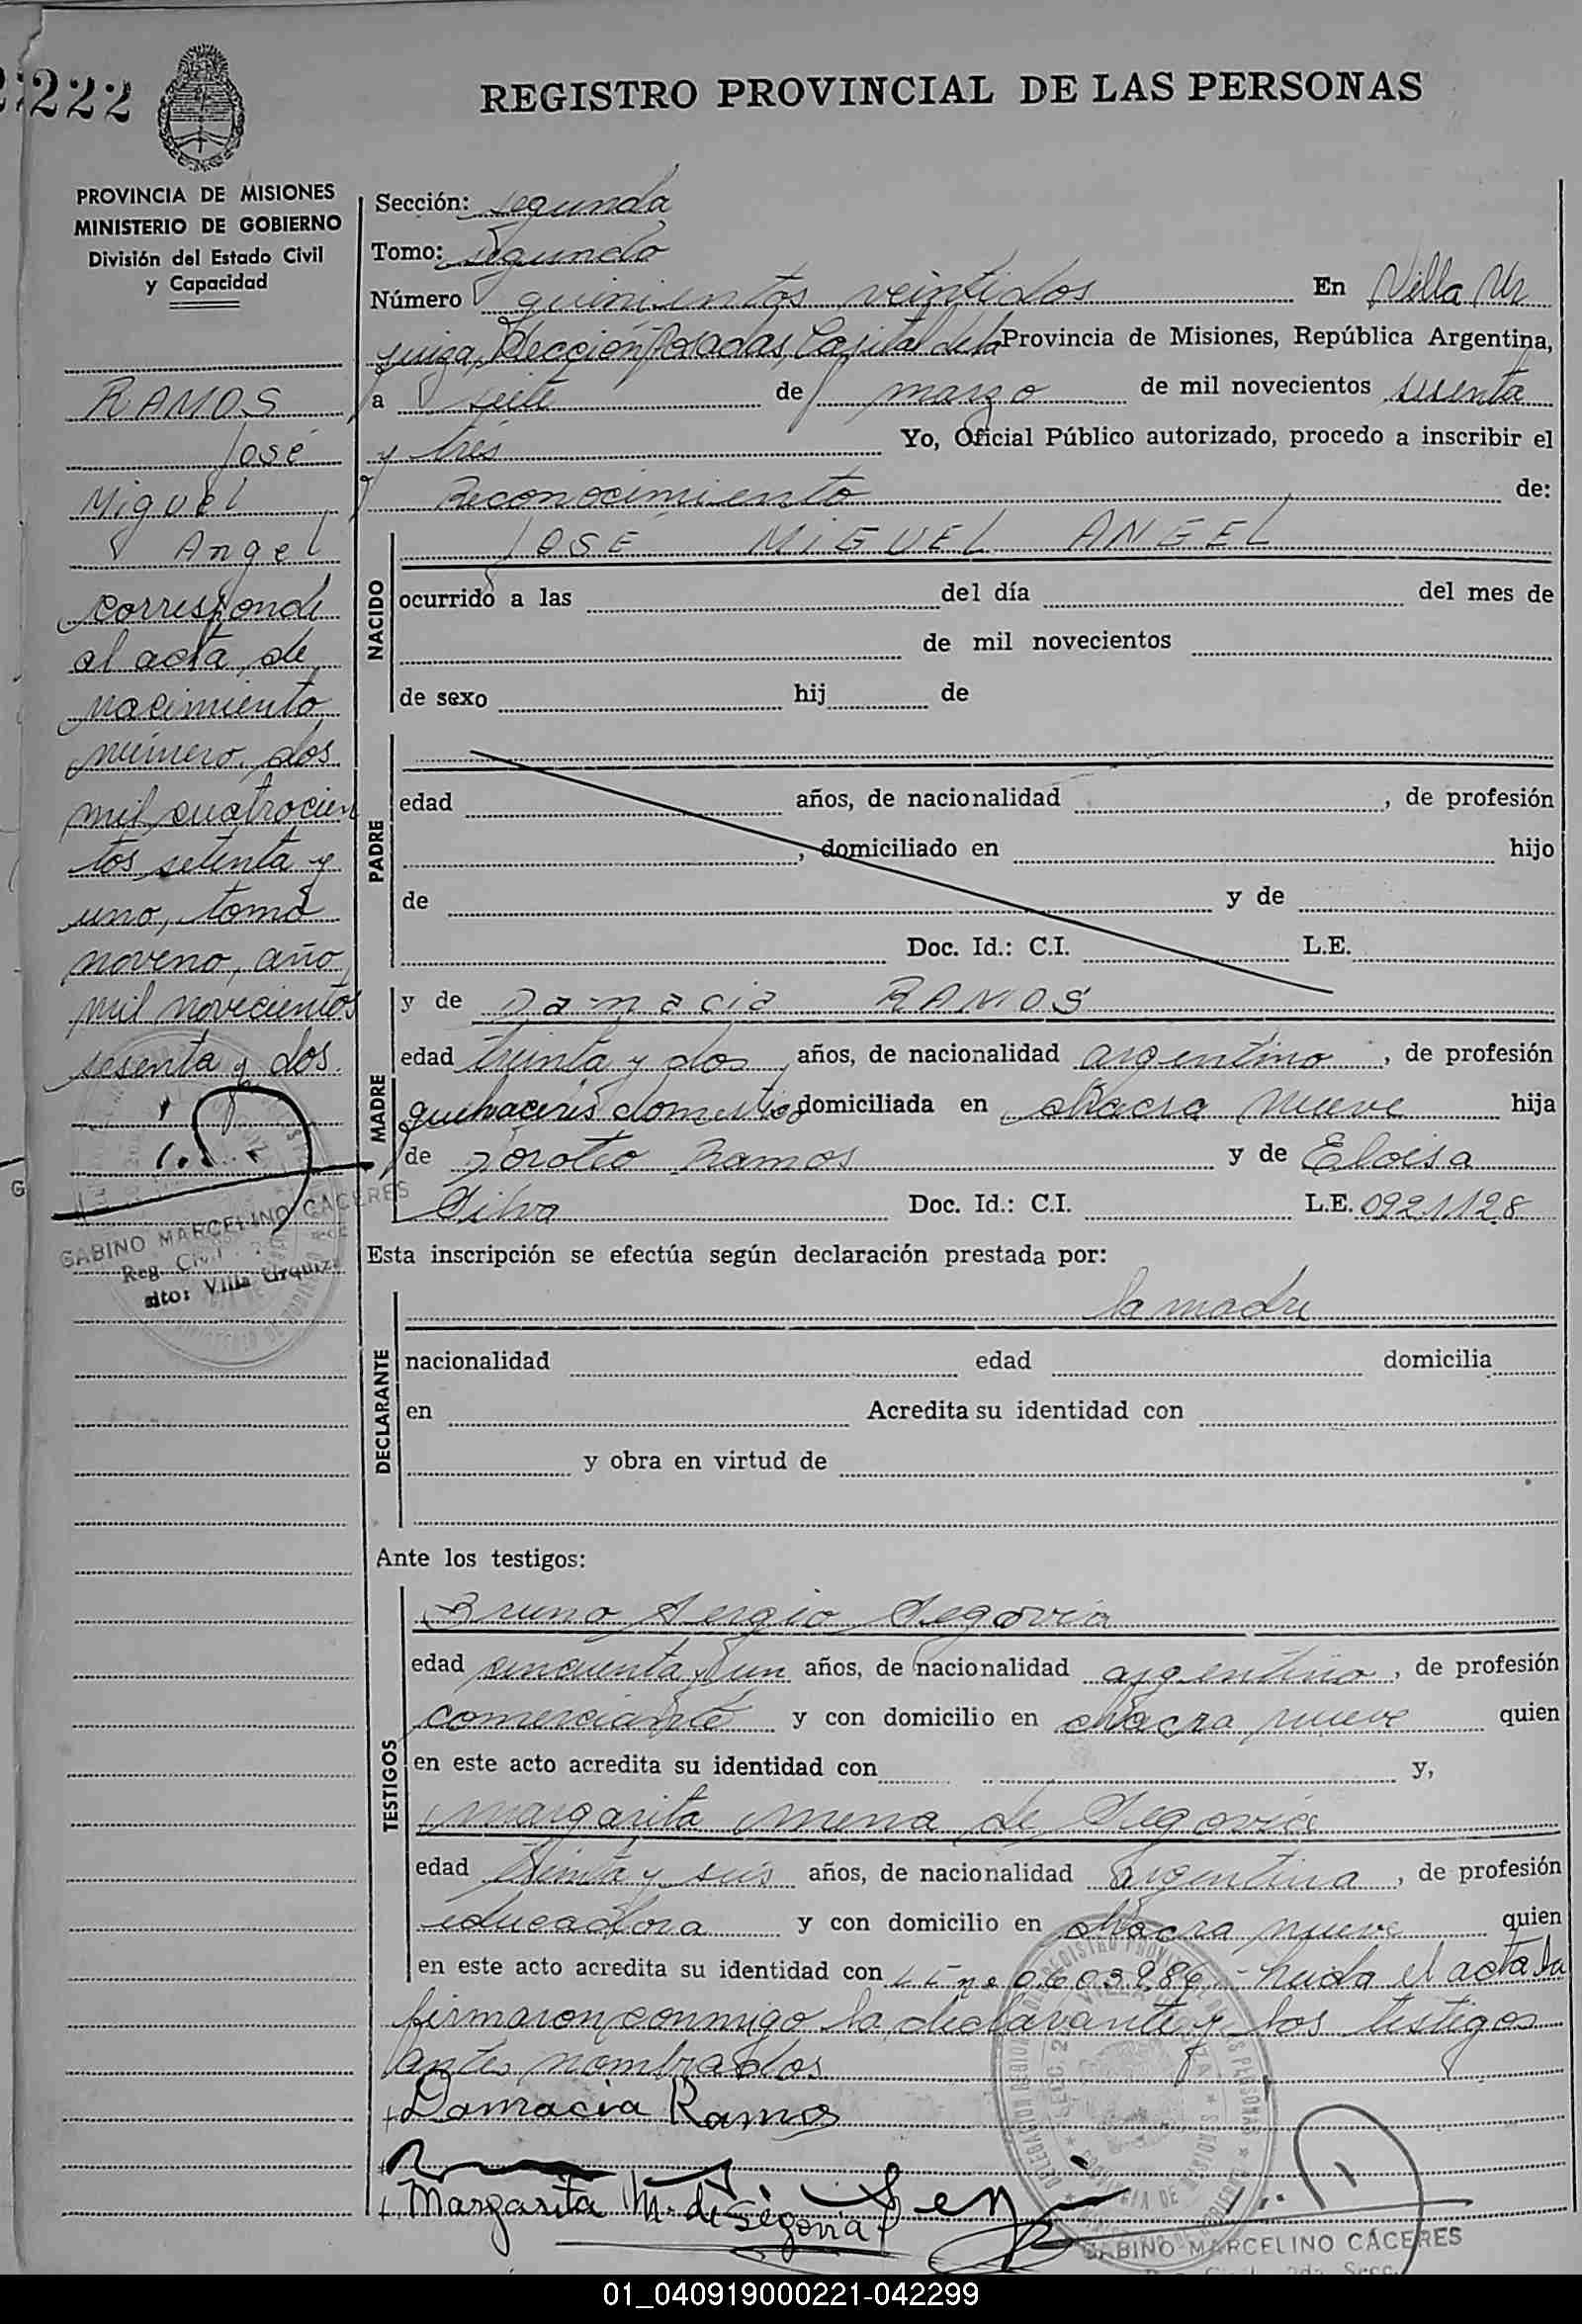 222
REGISTRO PROVINCIAL DE LAS PERSONAS
PROVINCIA DE MISIONES
MINISTERIO DE GOBIERNO
División del Estado Civil
y Capacidad
RAMOS
José
Miguel
Angel
corresponde
al acta de
nacimiento
número dos
mil cuatrocien
tos setenta y
uno, tomo
noveno, año
mil novecientos
sesenta y dos.
GABINO MARCELINO CACERES
Reg. Civil
Villa Urquiza
Sección: segunda
Tomo: segundo
Número quinientos veintidos En Villa Ur
quiza, Sección Posadas, Capital de la Provincia de Misiones, República Argentina,
a siete de marzo de mil novecientos sesenta
y tres Yo, Oficial Público autorizado, procedo a inscribir el
Reconocimiento de:
NACIDO
JOSÉ MIGUEL ANGEL
ocurrido a las del día del mes de
de mil novecientos
de sexo hij de
PADRE
edad años, de nacionalidad , de profesión
, domiciliado en hijo
de y de
Doc. Id.: C.I. L.E.
MADRE
y de Damacia RAMOS
edad treinta y dos años, de nacionalidad argentino, de profesión
quehaceres domestico domiciliada en chacra nueve hija
de Doroteo Ramos y de Eloisa
Silva Doc. Id.: C.I. L.E. 0921128
Esta inscripción se efectúa según declaración prestada por:
DECLARANTE
la madre
nacionalidad edad domicilia
en Acredita su identidad con
y obra en virtud de
Ante los testigos:
TESTIGOS
Bruno Sergio Segovia
edad cincuenta y un años, de nacionalidad argentino, de profesión
comerciante y con domicilio en chacra nueve quien
en este acto acredita su identidad con y,
Margarita Mena de Segovia
edad treinta y seis años, de nacionalidad argentina, de profesión
educadora y con domicilio en chacra nueve quien
en este acto acredita su identidad con leida el acta la
firmaron conmigo la declarante y los testigos
antes nombrados
Damacia Ramos
Margarita M. de Segovia
GABINO MARCELINO CÁCERES
01_040919000221-042299